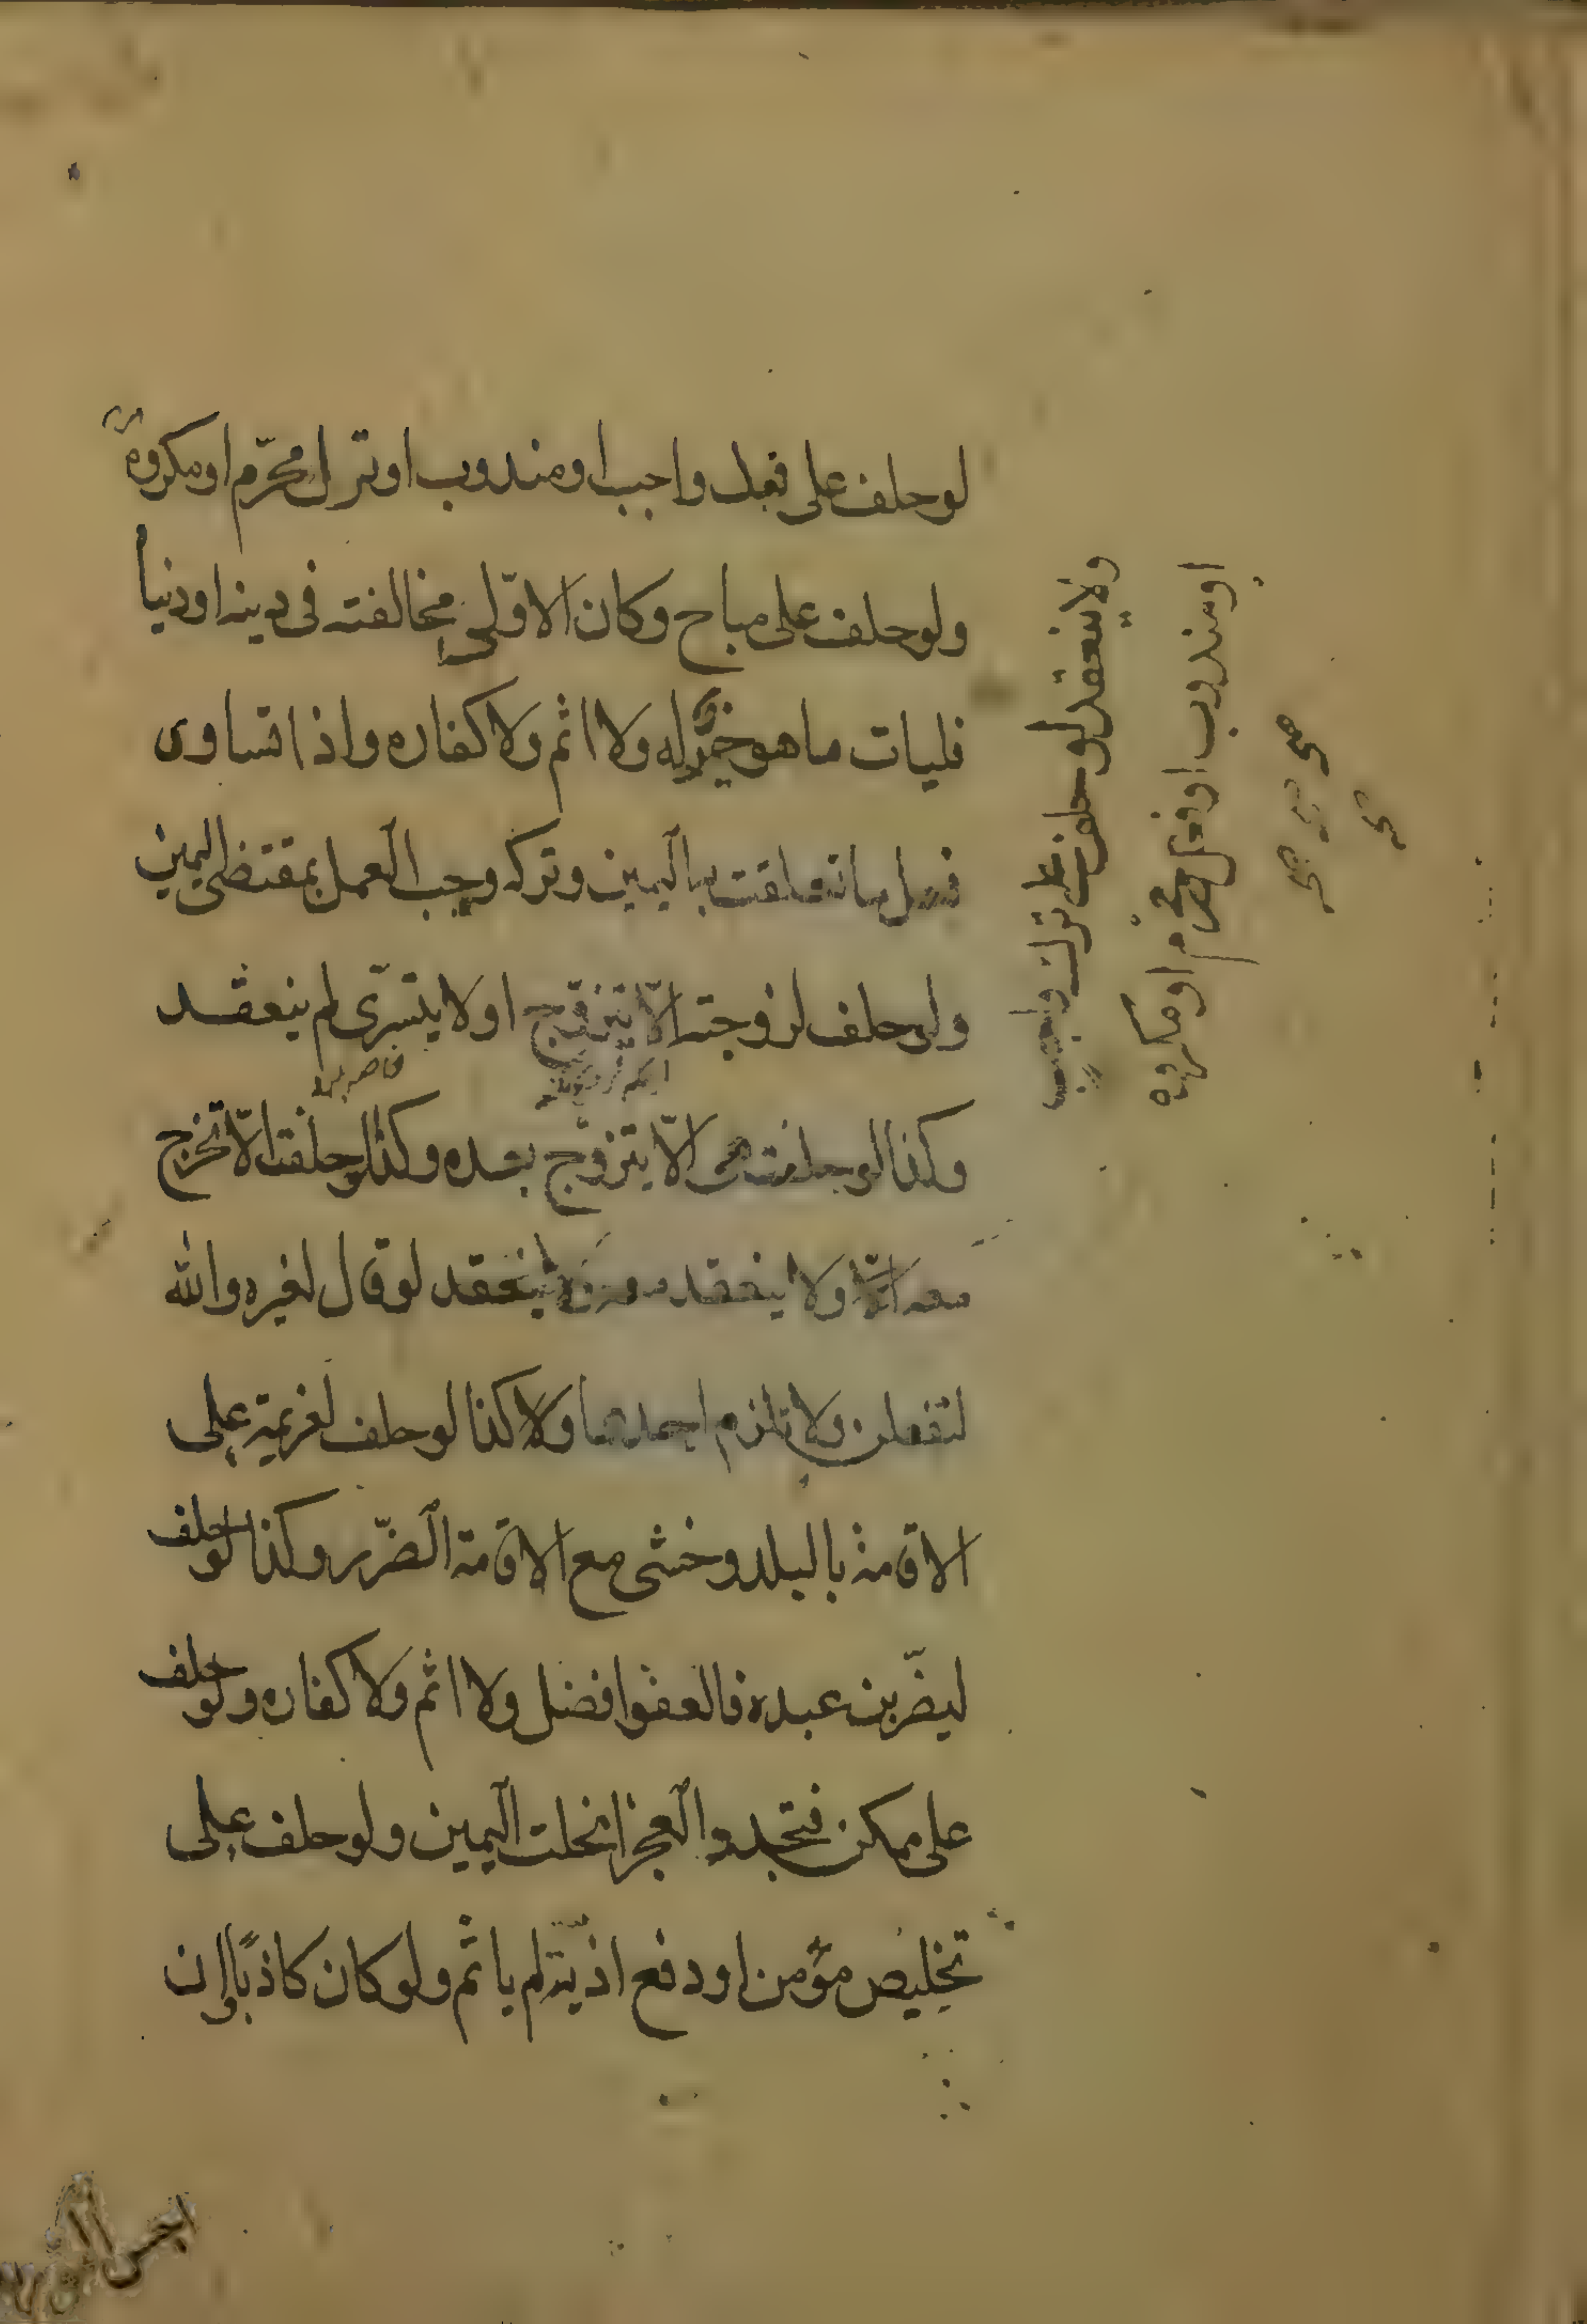 لو حلف على فعل واجب او مندوب او ترك محرّم او مكروه
ولو حلف على مباح وكان الاوّلى مخالفته فى دينه او دنيا
فليات ما هو خير له ولا اثم ولا كفاره واذا تساوى
فعل ما تعلقت به اليمين وتركه وجب العمل بمقتضى اليمين
ولو حلف لزوجته الّا يتزوج او لا يتسرّى لم ينعقد
وكذا لو حلفت هى الّا يتزوج بعده وكذا لو حلفت الّا تخرج
معه ولا ينعقد لو قال لغيره والله
لتفعلن ولا تلزم احدهما وكذا لو حلف لغريمة على
الاقامة بالبلد وخشى مع الاقامة الضّرر وكذا لو حلف
ليضّربن عبده فالعفو افضل ولا اثم ولا كفاره ولو حلف
على ممكن فتجدد العجز انحلت اليمين ولو حلف على
تخليص مؤمن او دفع اذيّة لم ياثم ولو كان كاذبًا إن
ولا ينعقد لو حلف على ترك واجب
او مندوب او فعل محرّم او مكروه
صح